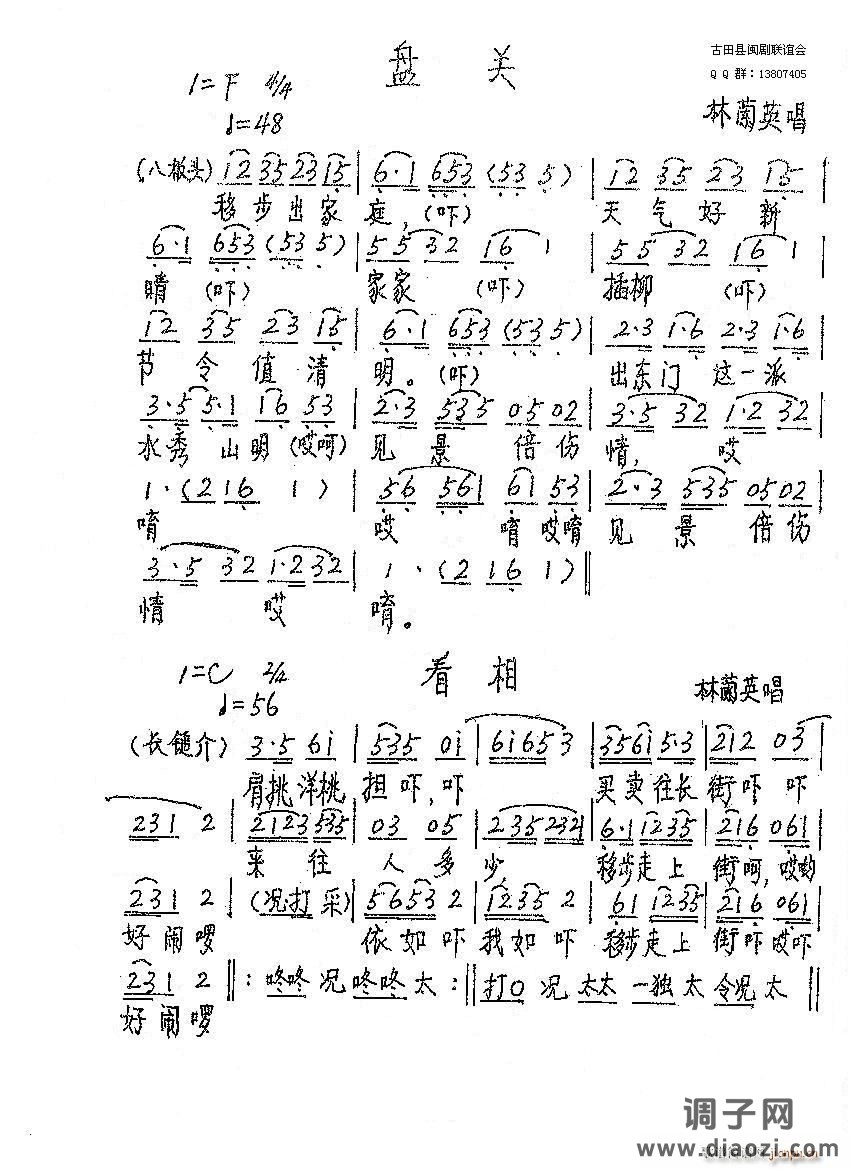 古田县闽剧联谊会
盘关
QQ群:13807405
1=F 4/4
♩=48
林蘭英唱
(八板头) 12 35 23 15 | 6·1 653 (53 5) | 12 35 23 15 |
移步出家庭,(吓) 天气好新
6·1 653 (53 5) | 55 32 16 1 | 55 32 16 1 |
晴(吓) 家家(吓) 插柳(吓)
12 35 23 15 | 6·1 653 (53 5) | 2·3 1·6 2·3 1·6 |
节令值清明。(吓) 出东门这一派
3·5 5·1 16 53 | 2·3 535 05 02 | 3·5 32 1·2 32 |
水秀山明(哎呵)见景倍伤情,哎
1·(216 1) | 56 561 61 53 | 2·3 535 05 02 |
唷 哎唷哎唷 见景倍伤
3·5 32 1·2 32 | 1·(2 16 1) ‖
情哎唷。
1=C 2/4
看相
♩=56
林蘭英唱
(长鎚介) 3·5 6i | 535 0i | 6i65 3 | 356i 5·3 | 212 03 |
肩挑洋桃担吓,吓 买卖往长街吓吓
231 2 | 2123 535 | 03 05 | 235 232 | 6·1 1235 | 216 061 |
来往人多少, 移步走上街呵,哎哟
231 2 | (况打采) | 5653 2 | 1235 2 | 61 1235 | 216 061 |
好闹啰 依如吓我如吓移步走上街吓哎吓
231 2 ‖: 咚咚况咚咚太 :‖ 打0况太太一独太令况太 ‖
好闹啰
调子网
www.diaozi.com